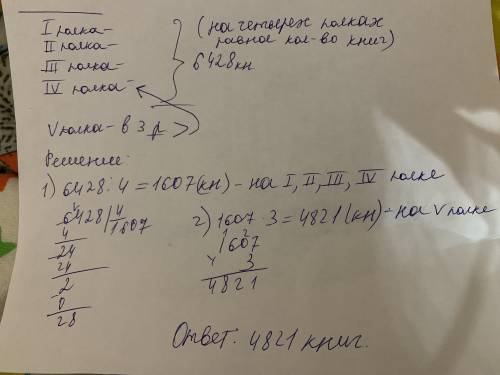 I полка-
II полка-
III полка-
IV полка-
(на четырёх полках
равное кол-во книг)
6428 кн.
V полка- в 3 р >
Решение:
1) 6428 : 4 = 1607(кн) - на I, II, III, IV полке
6428 | 4
4 1607
24
24
2
0
28
2) 1607 · 3 = 4821 (кн) - на V полке
1607
× 3
4821
Ответ: 4821 книг.